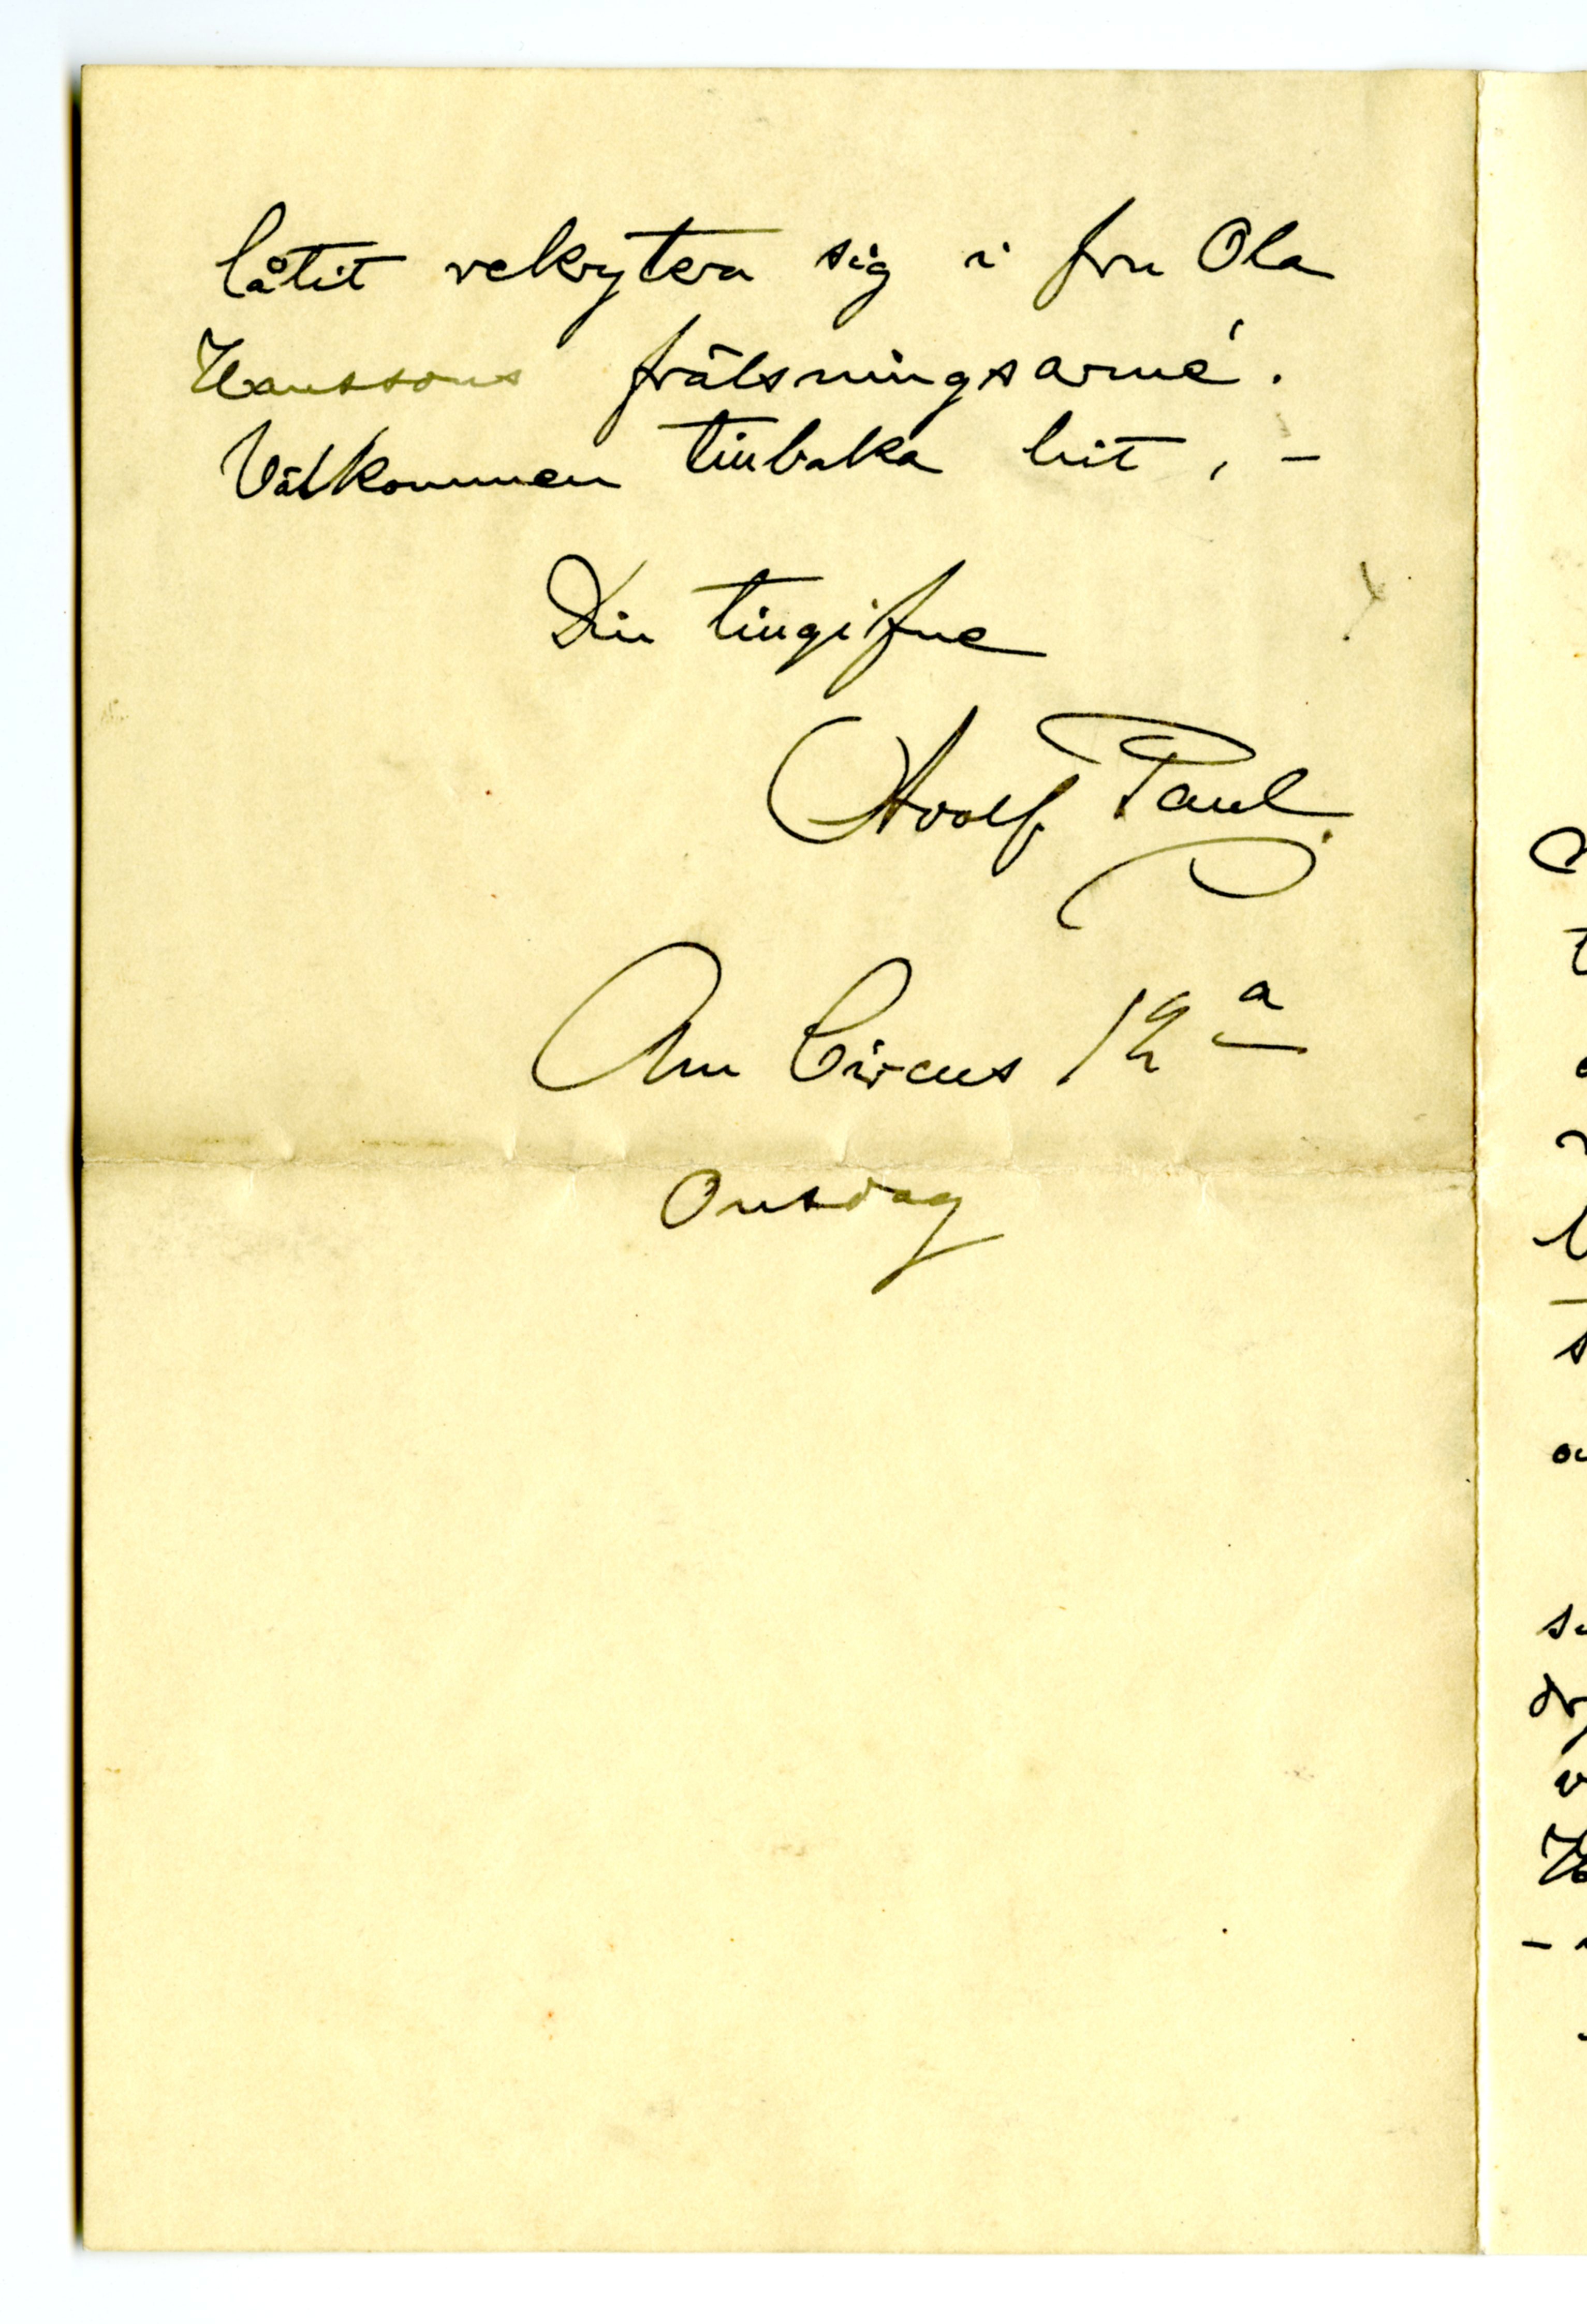 låtit rekrytera sig i fru Ola
Hanssons frälsningsarmé.
Välkommen tillbaka hit, –
Din tillgifne
Adolf Paul.
Am Circus 12 a
Onsdag